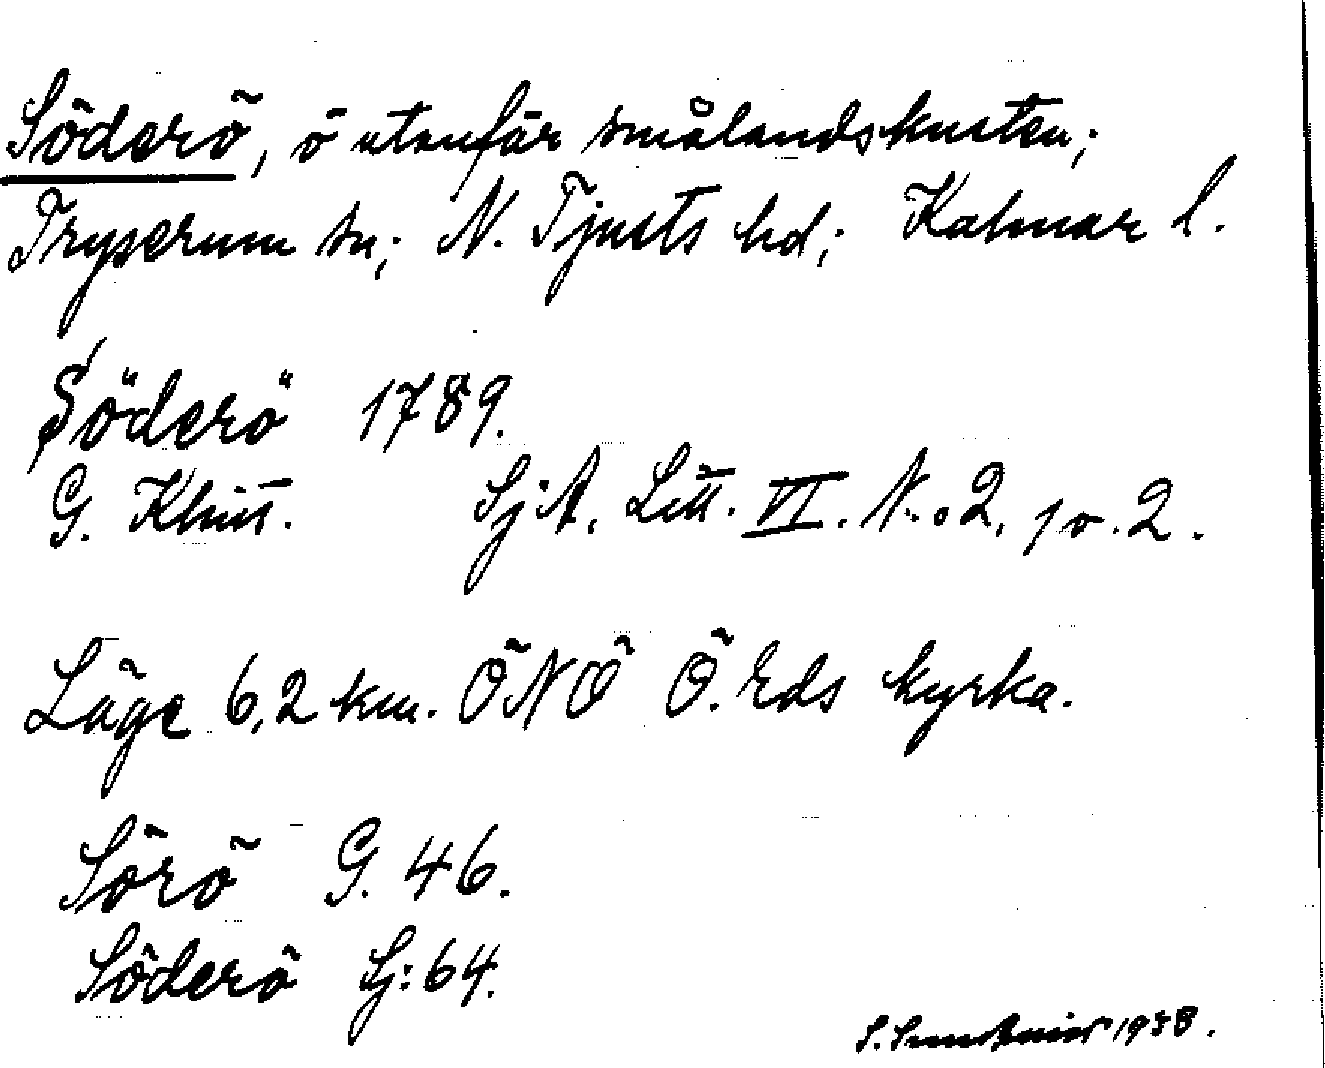 Söderö, ö utanför smålandskusten;
Tryserum sn; N. Tjusts hd; Kalmar l.
Söderö 1789.
G. Klint. Sj:A. Litt. VI. N:o 2. pr. 2.
Läge 6,2 km. ÖNÖ Ö. Eds kyrka.
Sörö G. 46.
Söderö Sj: 64.
S. 1938.